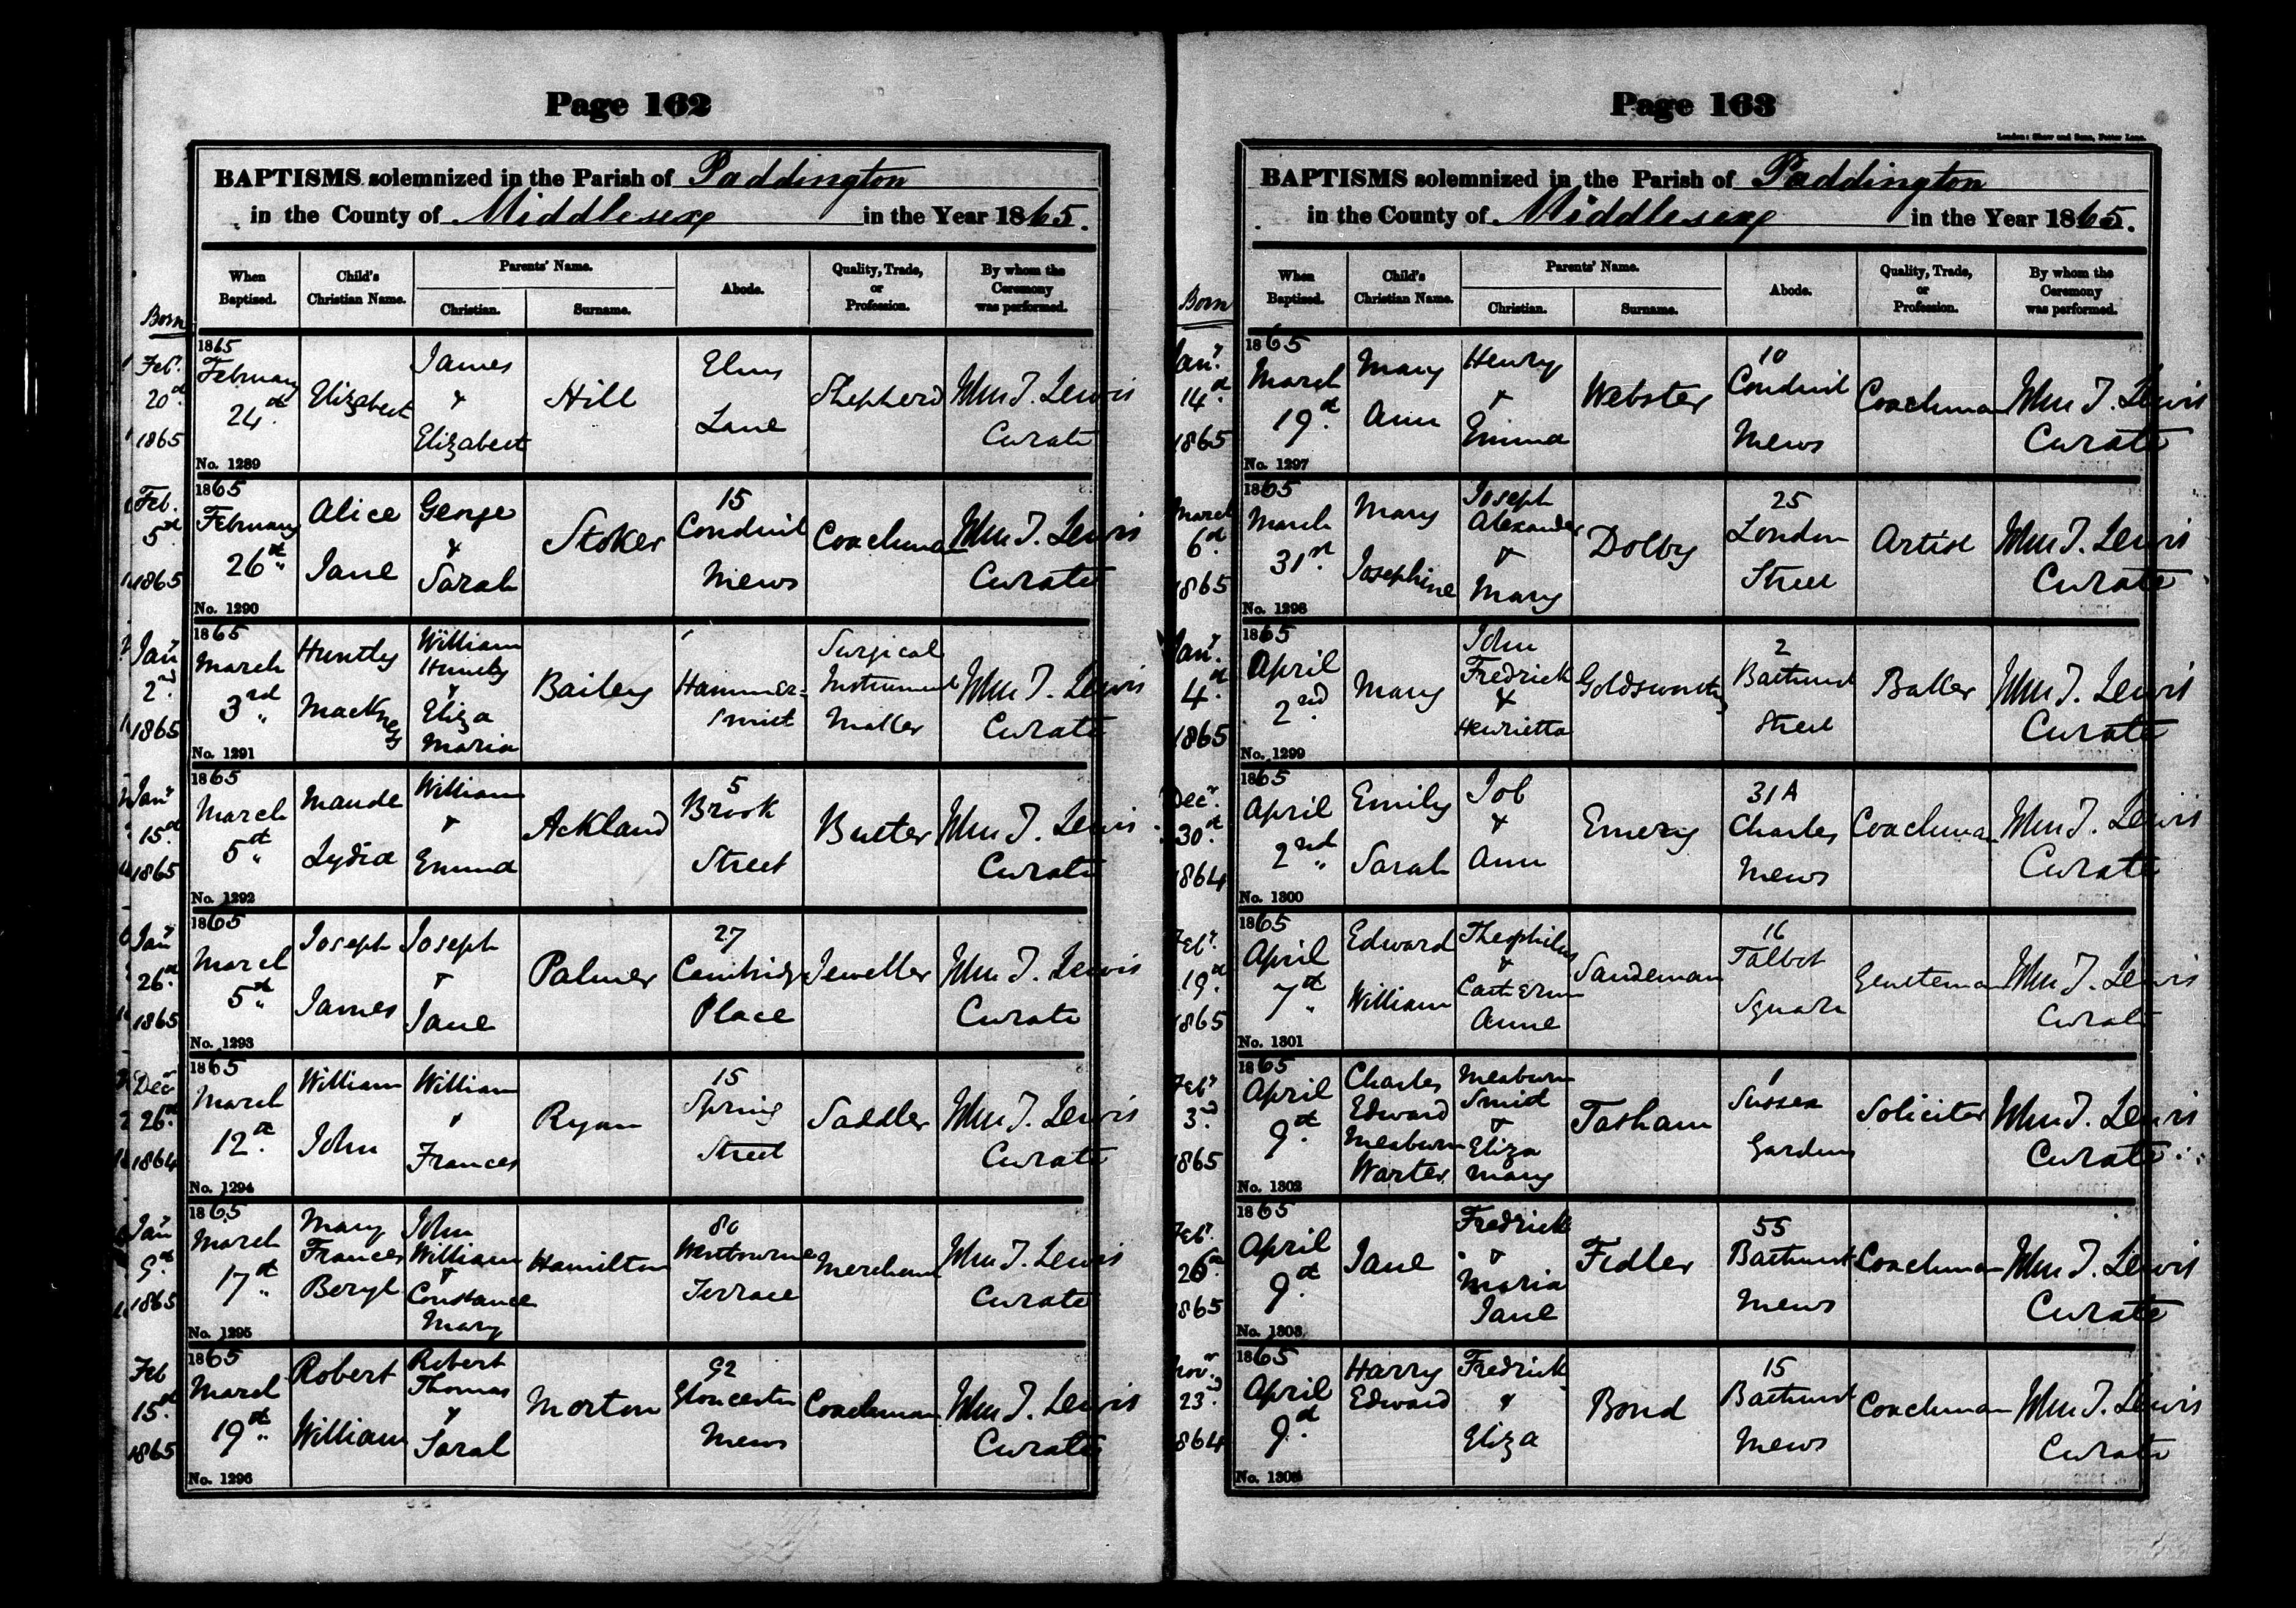 Page 162
BAPTISMS solemnized in the Parish of Paddington
in the County of Middlesex in the Year 1865.
When Baptized.
Child's Christian Name.
Parents' Name.
Christian.
Surname.
Abode.
Quality, Trade, or Profession.
By whom the Ceremony was performed.
Born
Feby. 20th 1865
1865 February 24th
Elizabeth
James & Elizabeth
Hill
Elms Lane
Shepherd
Wm J. Lewis Curate
No. 1289
Feb. 5th 1865
1865 February 26th
Alice Jane
George & Sarah
Stoker
15 Conduit Mews
Coachman
Wm J. Lewis Curate
No. 1290
Jany 2nd. 1865
1865 March 3rd
Huntly Mackney
William Huntly & Eliza Maria
Bailey
Hammer=smith
Surgical Instrument Maker
Wm J. Lewis Curate
No. 1291
Jany 15th 1865
1865 March 5th
Maude Lydia
William & Emma
Ackland
5 Brook Street
Butler
Wm J. Lewis Curate
No. 1292
Jany 26th 1865
1865 March 5th
Joseph James
Joseph & Jane
Palmer
27 Cambridge Place
Jeweller
Wm J. Lewis Curate
No. 1293
Decr 26th 1864
1865 March 12th
William John
William & Frances
Ryan
15 Spring Street
Saddler
Wm J. Lewis Curate
No. 1294
Jany 9th 1865
1865 March 17th
Mary Frances Beryl
John William & Constance Mary
Hamilton
80 Westbourne Terrace
Merchant
Wm J. Lewis Curate
No. 1295
Feb 15th 1865
1865 March 19th
Robert William
Robert Thomas & Sarah
Morton
92 Gloucester Mews
Coachman
Wm J. Lewis Curate
No. 1296
Page 163
London: Shaw and Sons, Fetter Lane.
BAPTISMS solemnized in the Parish of Paddington
in the County of Middlesex in the Year 1865.
When Baptized.
Child's Christian Name.
Parents' Name.
Christian.
Surname.
Abode.
Quality, Trade, or Profession.
By whom the Ceremony was performed.
Born
Jany. 14th 1865
1865 March 19th
Mary Ann
Henry & Emma
Webster
10 Conduit Mews
Coachman
Wm J. Lewis Curate
No. 1297
March 6th 1865
1865 March 31st
Mary Josephine
Joseph Alexander & Mary
Dolby
25 London Street
Artist
Wm J. Lewis Curate
No. 1298
Jany. 4th 1865
1865 April 2nd
Mary
John Fredrick & Henrietta
Goldsworthy
2 Bathurst Street
Baker
Wm J. Lewis Curate
No. 1299
Decr. 30th 1864
1865 April 2nd
Emily Sarah
Job & Ann
Emery
31A Charles Mews
Coachman
Wm J. Lewis Curate
No. 1300
Feby. 19th 1865
1865 April 7th
Edward William
Theophilus & Catherine Anne
Sandeman
16 Talbot Square
Gentleman
Wm J. Lewis Curate
No. 1301
Feby 3rd 1865
1865 April 9th
Charles Edward Meaburn Warter
Meaburn Smith & Eliza Mary
Tatham
1 Sussex Gardens
Solicitor
Wm J. Lewis Curate
No. 1302
Feby. 26th 1865
1865 April 9th
Jane
Fredrick & Maria Jane
Fidler
55 Bathurst Mews
Coachman
Wm J. Lewis Curate
No. 1303
Novr. 23rd 1864
1865 April 9th
Harry Edward
Fredrick & Eliza
Bond
15 Bathurst Mews
Coachman
Wm J. Lewis Curate
No. 1304